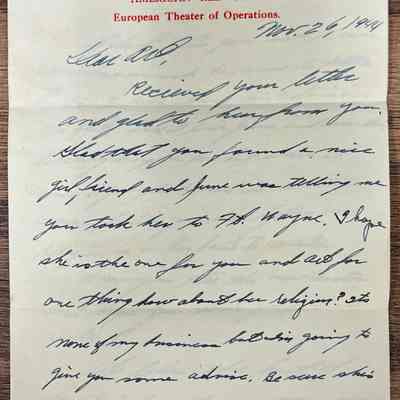 AMERICAN RED
European Theater of Operations.
Nov. 26, 1944
Dear Art,
Recieved your letter
and glad to hear from you.
Glad that you found a nice
girl friend and June was telling me
you took her to Ft. Wayne. I hope
she is the one for you and Art for
one thing how about her religion? Its
none of my business but I'm going to
give you some advise. Be sure she's